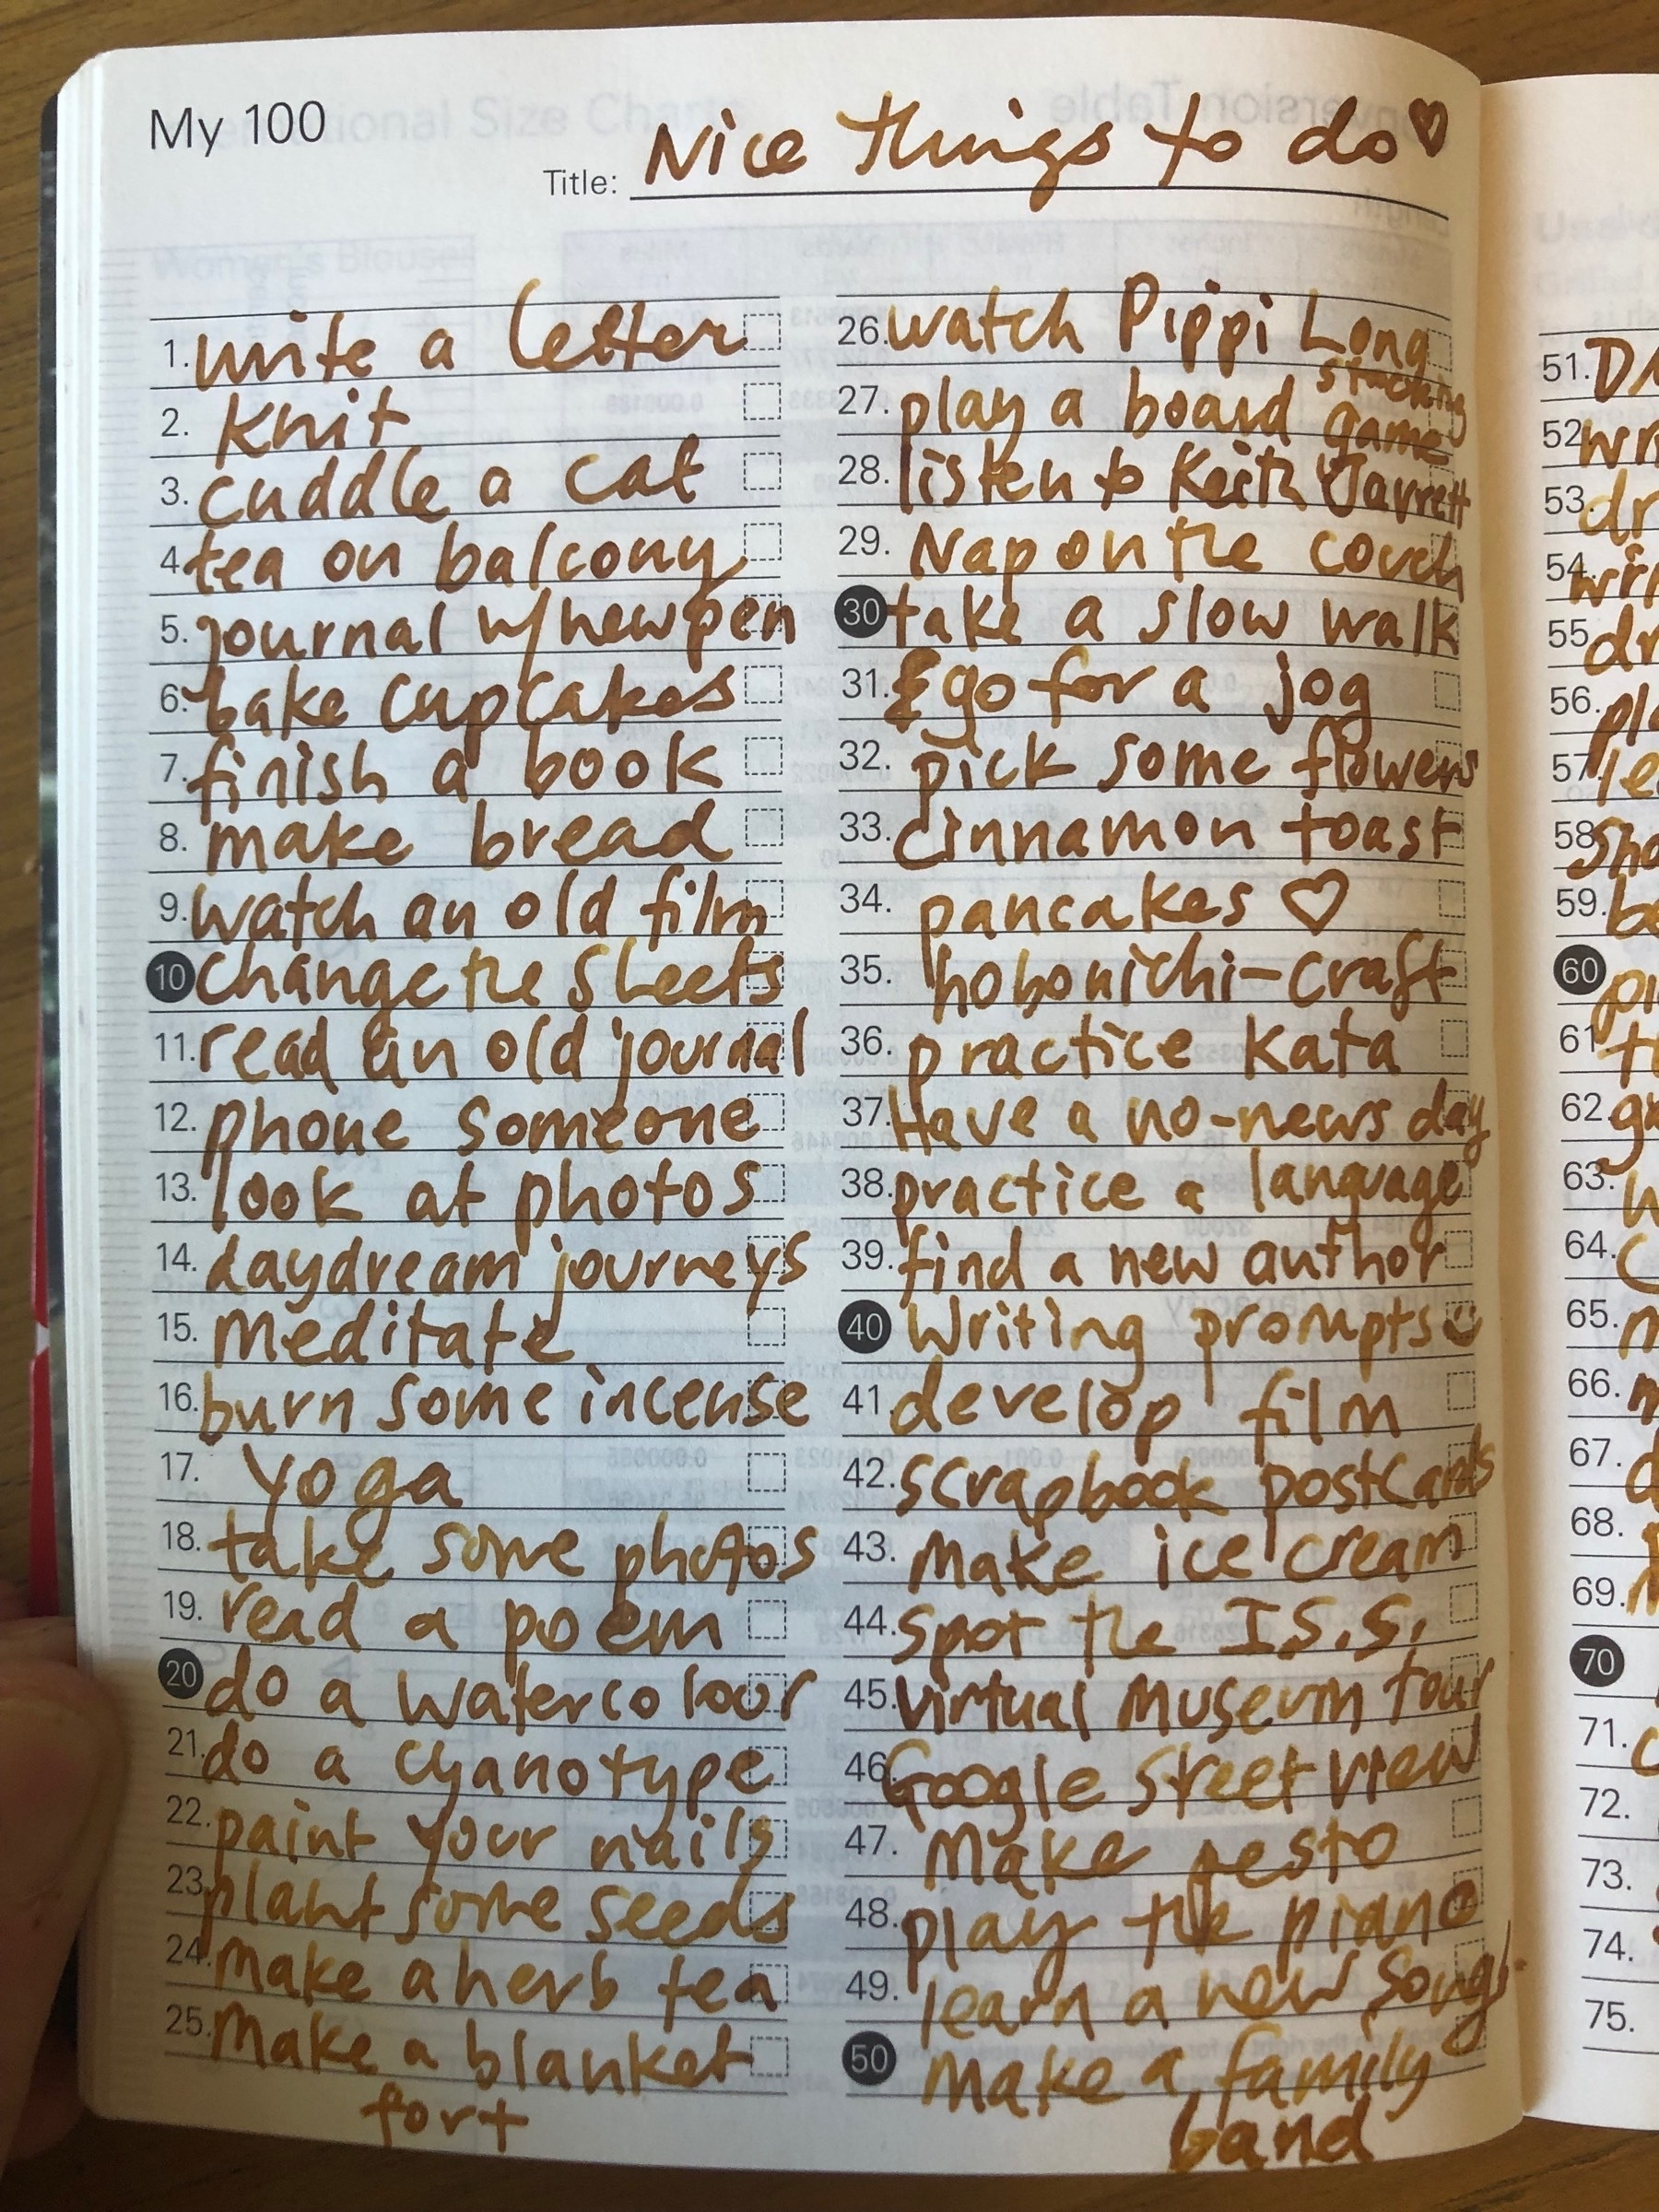 My 100
Title: Nice things to do ♡
1. write a letter
2. Knit
3. cuddle a cat
4. tea on balcony
5. journal w/new pen
6. bake cupcakes
7. finish a book
8. make bread
9. watch an old film
10 change the sheets
11. read an old journal
12. phone someone
13. look at photos
14. daydream journeys
15. Meditate
16. burn some incense
17. Yoga
18. take some photos
19. read a poem
20 do a watercolour
21. do a cyanotype
22. paint your nails
23. plant some seeds
24. make a herb tea
25. Make a blanket
fort
26. watch Pippi Long
stocking
27. play a board game
28. listen to Keith Jarrett
29. Nap on the couch
30 take a slow walk
31. & go for a jog
32. pick some flowers
33. cinnamon toast
34. pancakes ♡
35. hobonichi-craft
36. practice Kata
37. Have a no-news day
38. practice a language
39. find a new author
40 Writing prompts
41. develop film
42. scrapbook postcards
43. Make ice cream
44. Spot the I.S.S.
45. Virtual Museum tour
46. Google Street view
47. Make pesto
48. play the piano
49. learn a new song
50 Make a family
band
51.
52
53.
54.
55
56.
57.
58
59.
60
61
62.
63.
64.
65.
66.
67.
68.
69.
70
71.
72.
73.
74.
75.